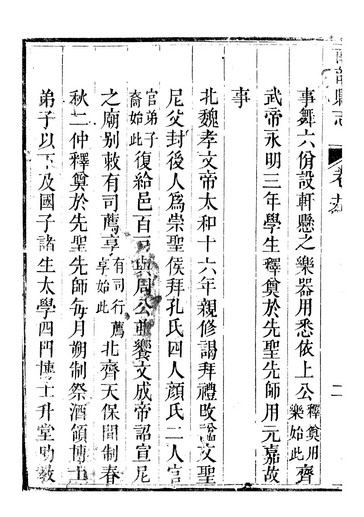 縣志 卷
二
事舞六佾設軒懸之樂器用悉依上公釋奠用樂始此齊
武帝永明三年學生釋奠於先聖先師用元嘉故
事
北魏孝文帝太和十六年親修謁拜禮改諡文聖
尼父封後人爲崇聖侯拜孔氏四人顏氏二人官
官弟子裔始此復給邑百與周公並饗文成帝詔宣尼
之廟别敕有司薦享有司行薦享始此北齊天保間制春
秋二仲釋奠於先聖先師每月朔制祭酒領博士
弟子以下及國子諸生太學四門博士升堂助教